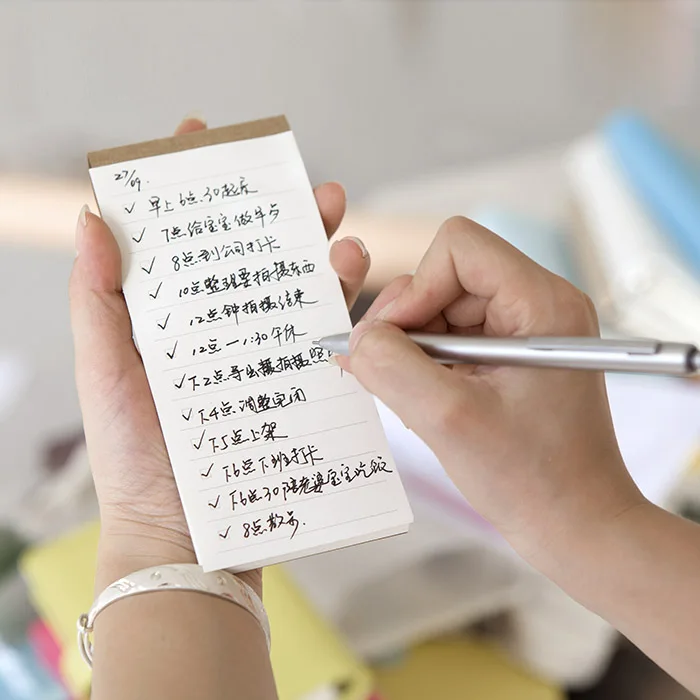 27/09.
✓ 早上6点30起床
✓ 7点给宝宝做早点
✓ 8点到公司打卡
✓ 10点整理要拍摄东西
✓ 12点钟拍摄结束
✓ 12点一1:30午休
✓ 下2点导出摄拍摄照
✓ 下4点调整完闭
✓ 下5点上架
✓ 下6点下班打卡
✓ 下6点30陪老婆宝宝吃饭
✓ 8点散步.